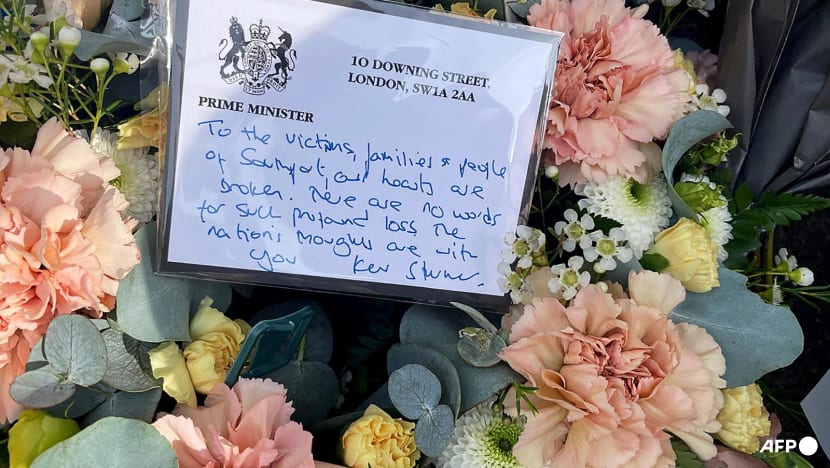 10 DOWNING STREET,
LONDON, SW1A 2AA
PRIME MINISTER
To the victims, families & people
of Southport, our hearts are
broken. There are no words
for such profound loss. The
nation's thoughts are with
you Keir Starmer.
AFP